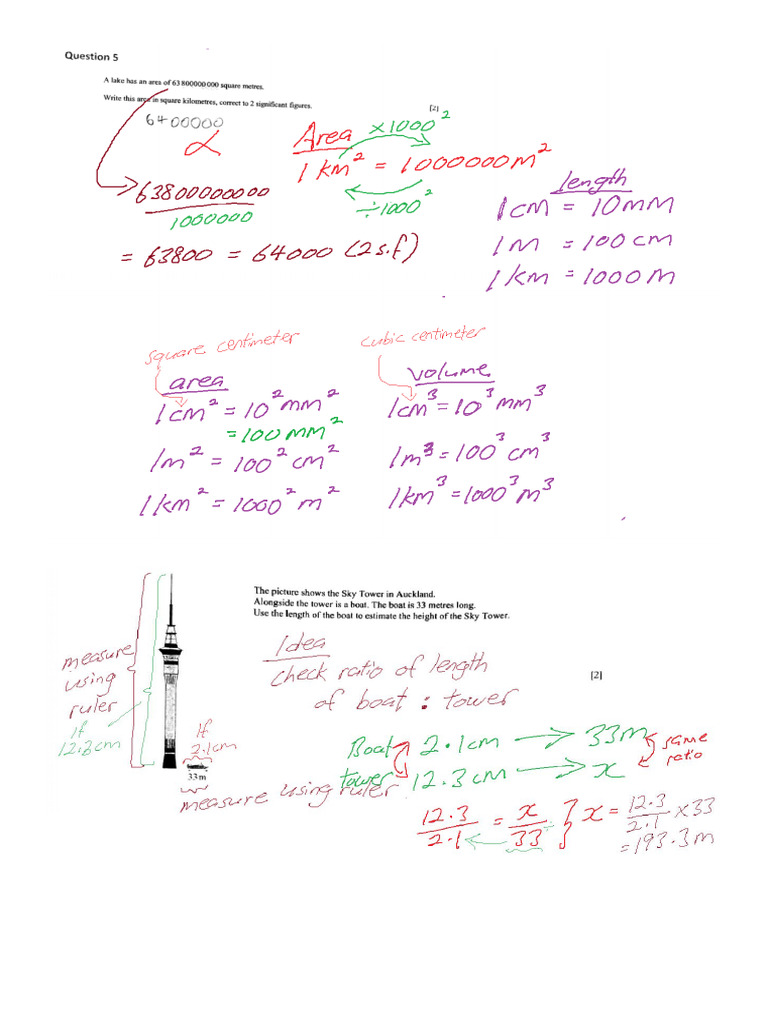 Question 5
A lake has an area of 63 800 000 000 square metres.
Write this area in square kilometres, correct to 2 significant figures.
[2]
6400000
Area
×1000²
1 km² = 1000000 m²
÷1000²
63800000000
1000000
= 63800 = 64000 (2 s.f)
length
1 cm = 10 mm
1 m = 100 cm
1 km = 1000 m
square centimeter
area
1 cm² = 10² mm²
= 100 mm²
1 m² = 100² cm²
1 km² = 1000² m²
cubic centimeter
volume
1 cm³ = 10³ mm³
1 m³ = 100³ cm³
1 km³ = 1000³ m³
The picture shows the Sky Tower in Auckland.
Alongside the tower is a boat. The boat is 33 metres long.
Use the length of the boat to estimate the height of the Sky Tower.
[2]
measure
using
ruler
If
12.3cm
If
2.1cm
33 m
measure using ruler
Idea
check ratio of length
of boat : tower
Boat 2.1cm → 33m
tower 12.3cm → x
same
ratio
12.3/2.1 = x/33 } x = 12.3/2.1 × 33
= 193.3 m